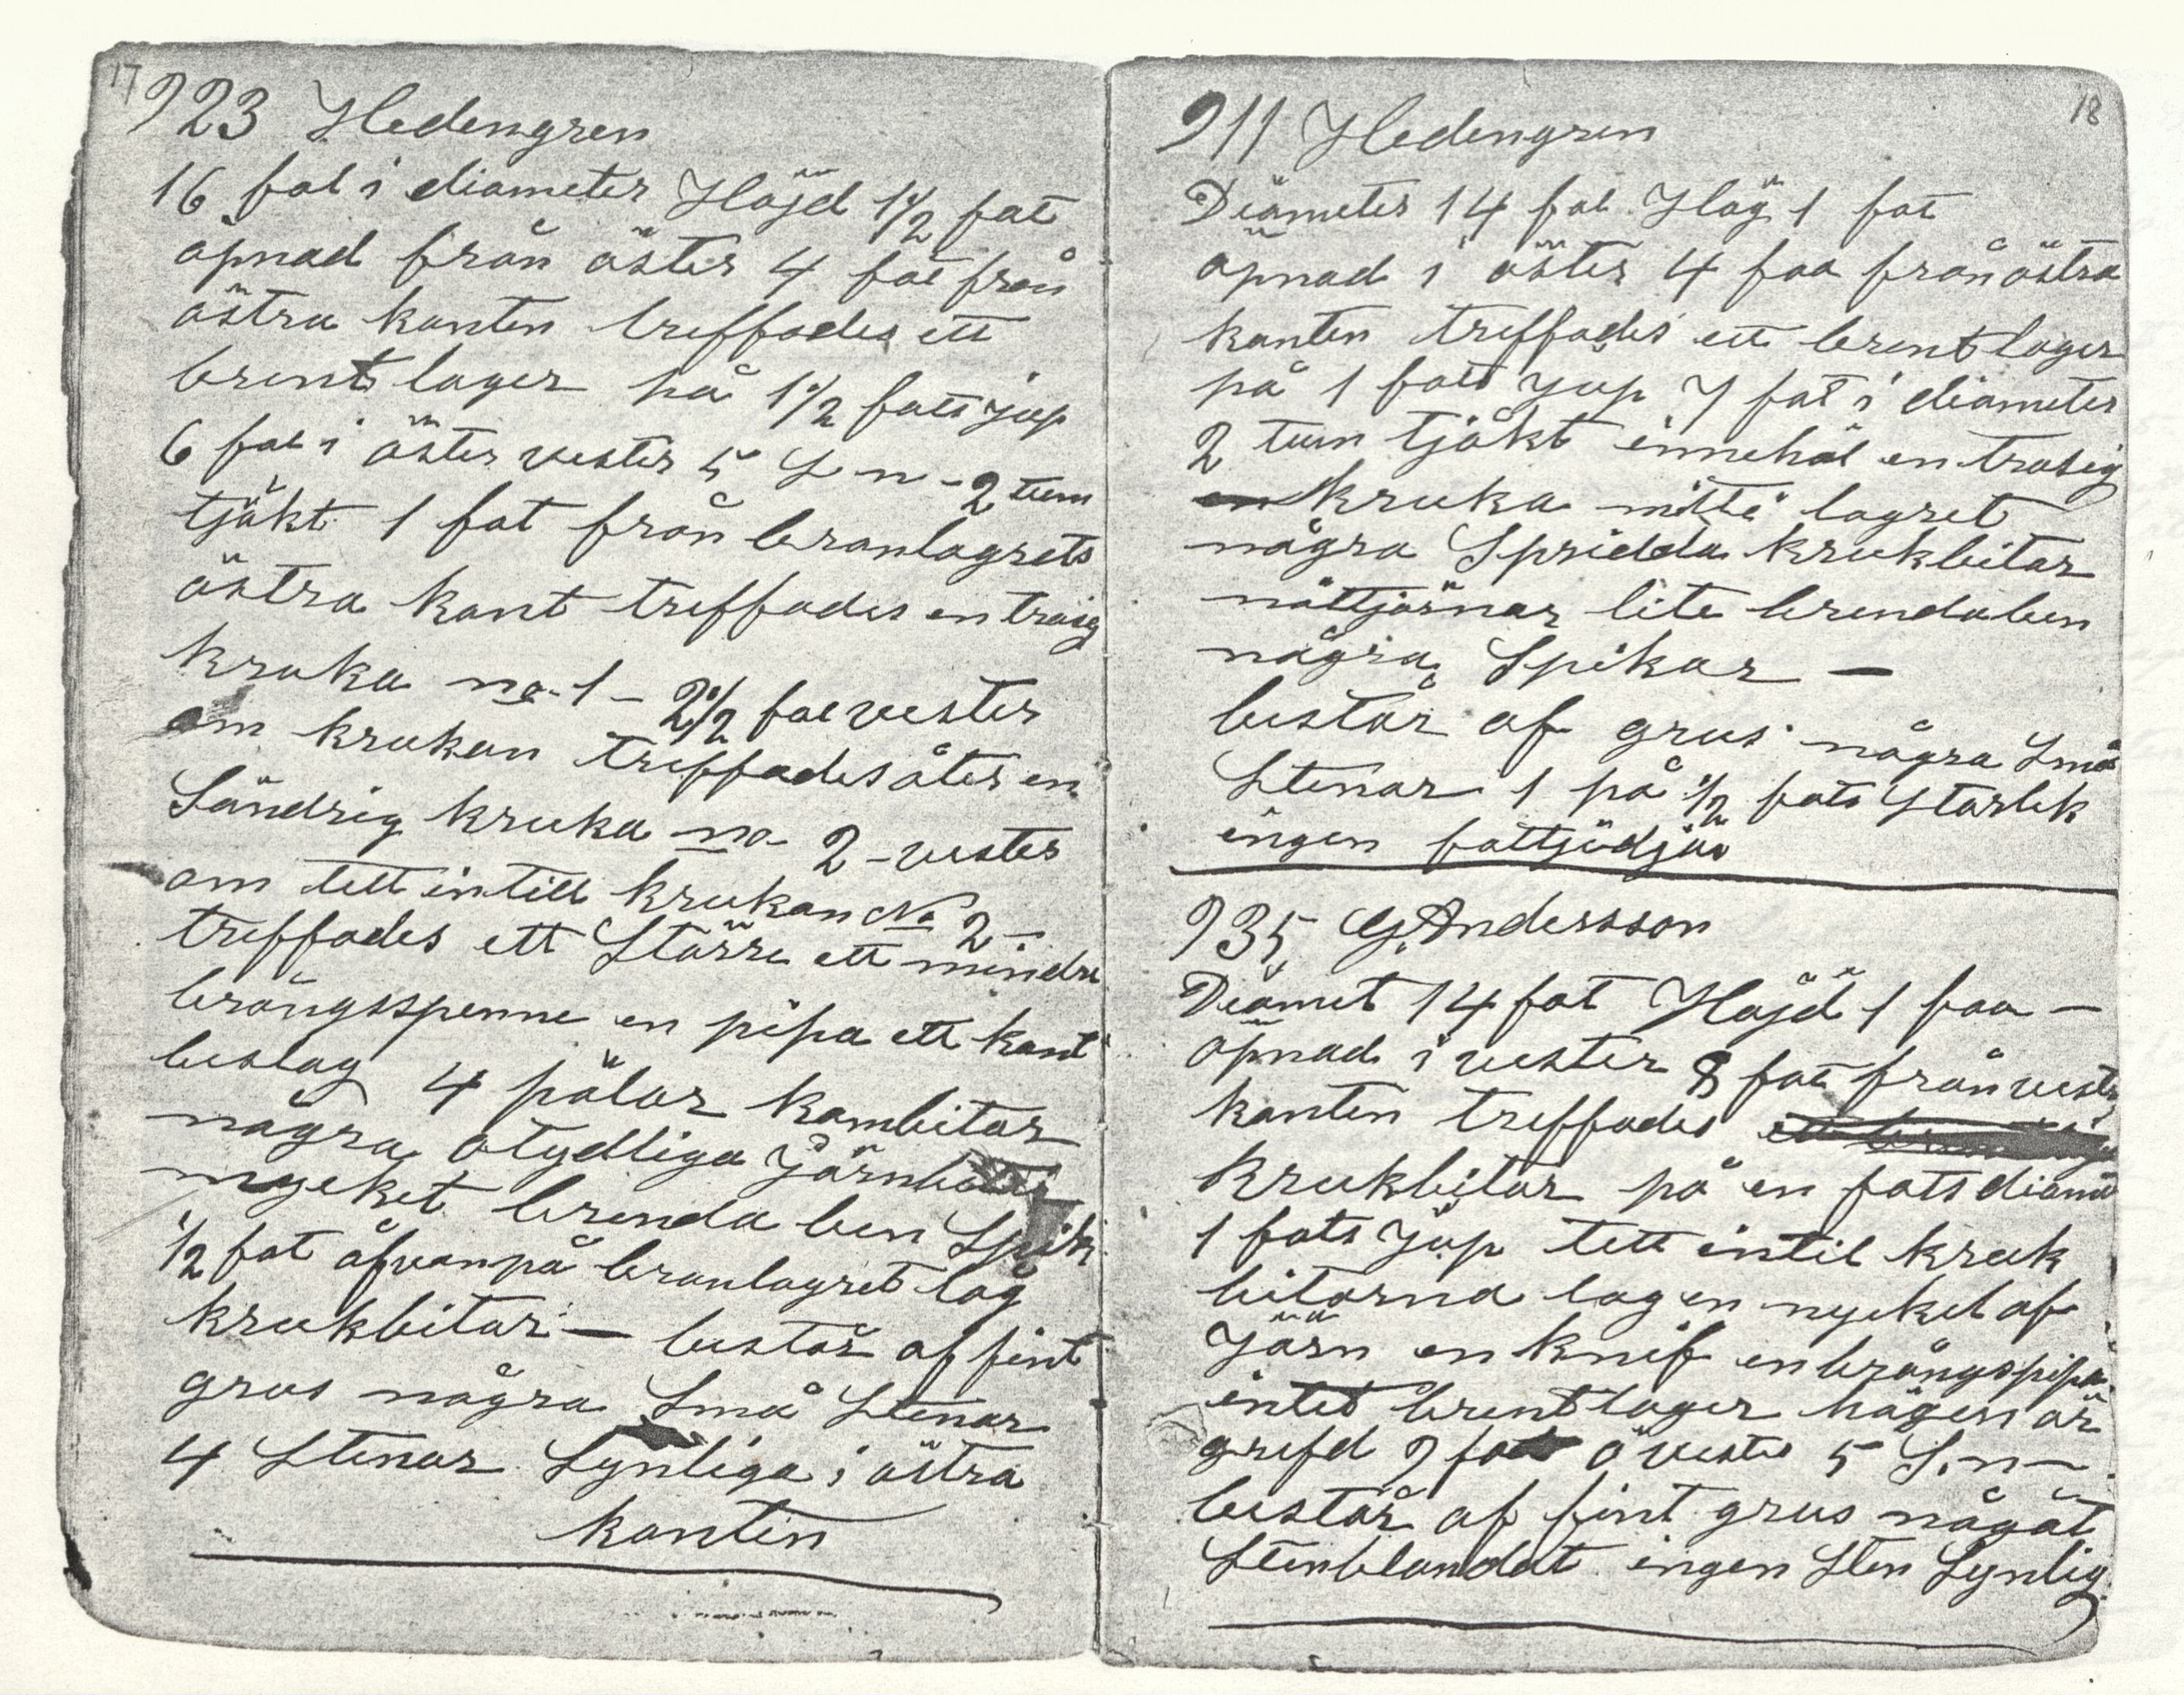 17
923 Hedengren
16 fot i diameter Höjd 1 1/2 fot
öpnad från öster 4 fot från
östra kanten treffades ett
brent lager på 1 1/2 fots jup
6 fot i öster vester 5 S n - 2 tum
tjökt 1 fot från branlagrets
östra kant treffades en trasig
kruka no 1 - 2 1/2 fot vester
om krukan treffades åter en
Söndrig kruka no 2 - vester
om tett intill krukan No 2 -
treffades ett Större ett mindre
brångsspenne en pipa ett kant
beslag 4 pölar kambitar
några otydliga järnbitar
myeket brenda ben Spik
1/2 fot åfvanpå branlagret låg
krukbitar - består af fint
grus några Små Stenar
4 Stenar Synliga i östra
kanten
18
911 Hedengren
Diameter 14 fot Hög 1 fot
öpnad i öster 4 fot från östra
kanten treffades ett brent lager
på 1 fots jup 7 fot i diameter
2 tum tjökt innehöl en trasig
en kruka mitti lagret
några Spridda krukbitar
nöttjärnar lite brenda ben
några Spikar -
består af grus några Små
Stenar 1 på 1/2 fots Storlek
ingen fottjädjä
935 G. Andersson
Diamet 14 fot Höjd 1 fot -
öpnad i vester 8 fot från vestra
kanten treffades ett
krukbitar på en fots diame
1 fots jup tett intil kruk
bitarna lag en nyckel af
Järn en knif en brångspipa
intet brent lager högen är
grefd 9 fot ö vester 5 S. n -
består af fint grus någåt
Stenblandat ingen Sten Synlig